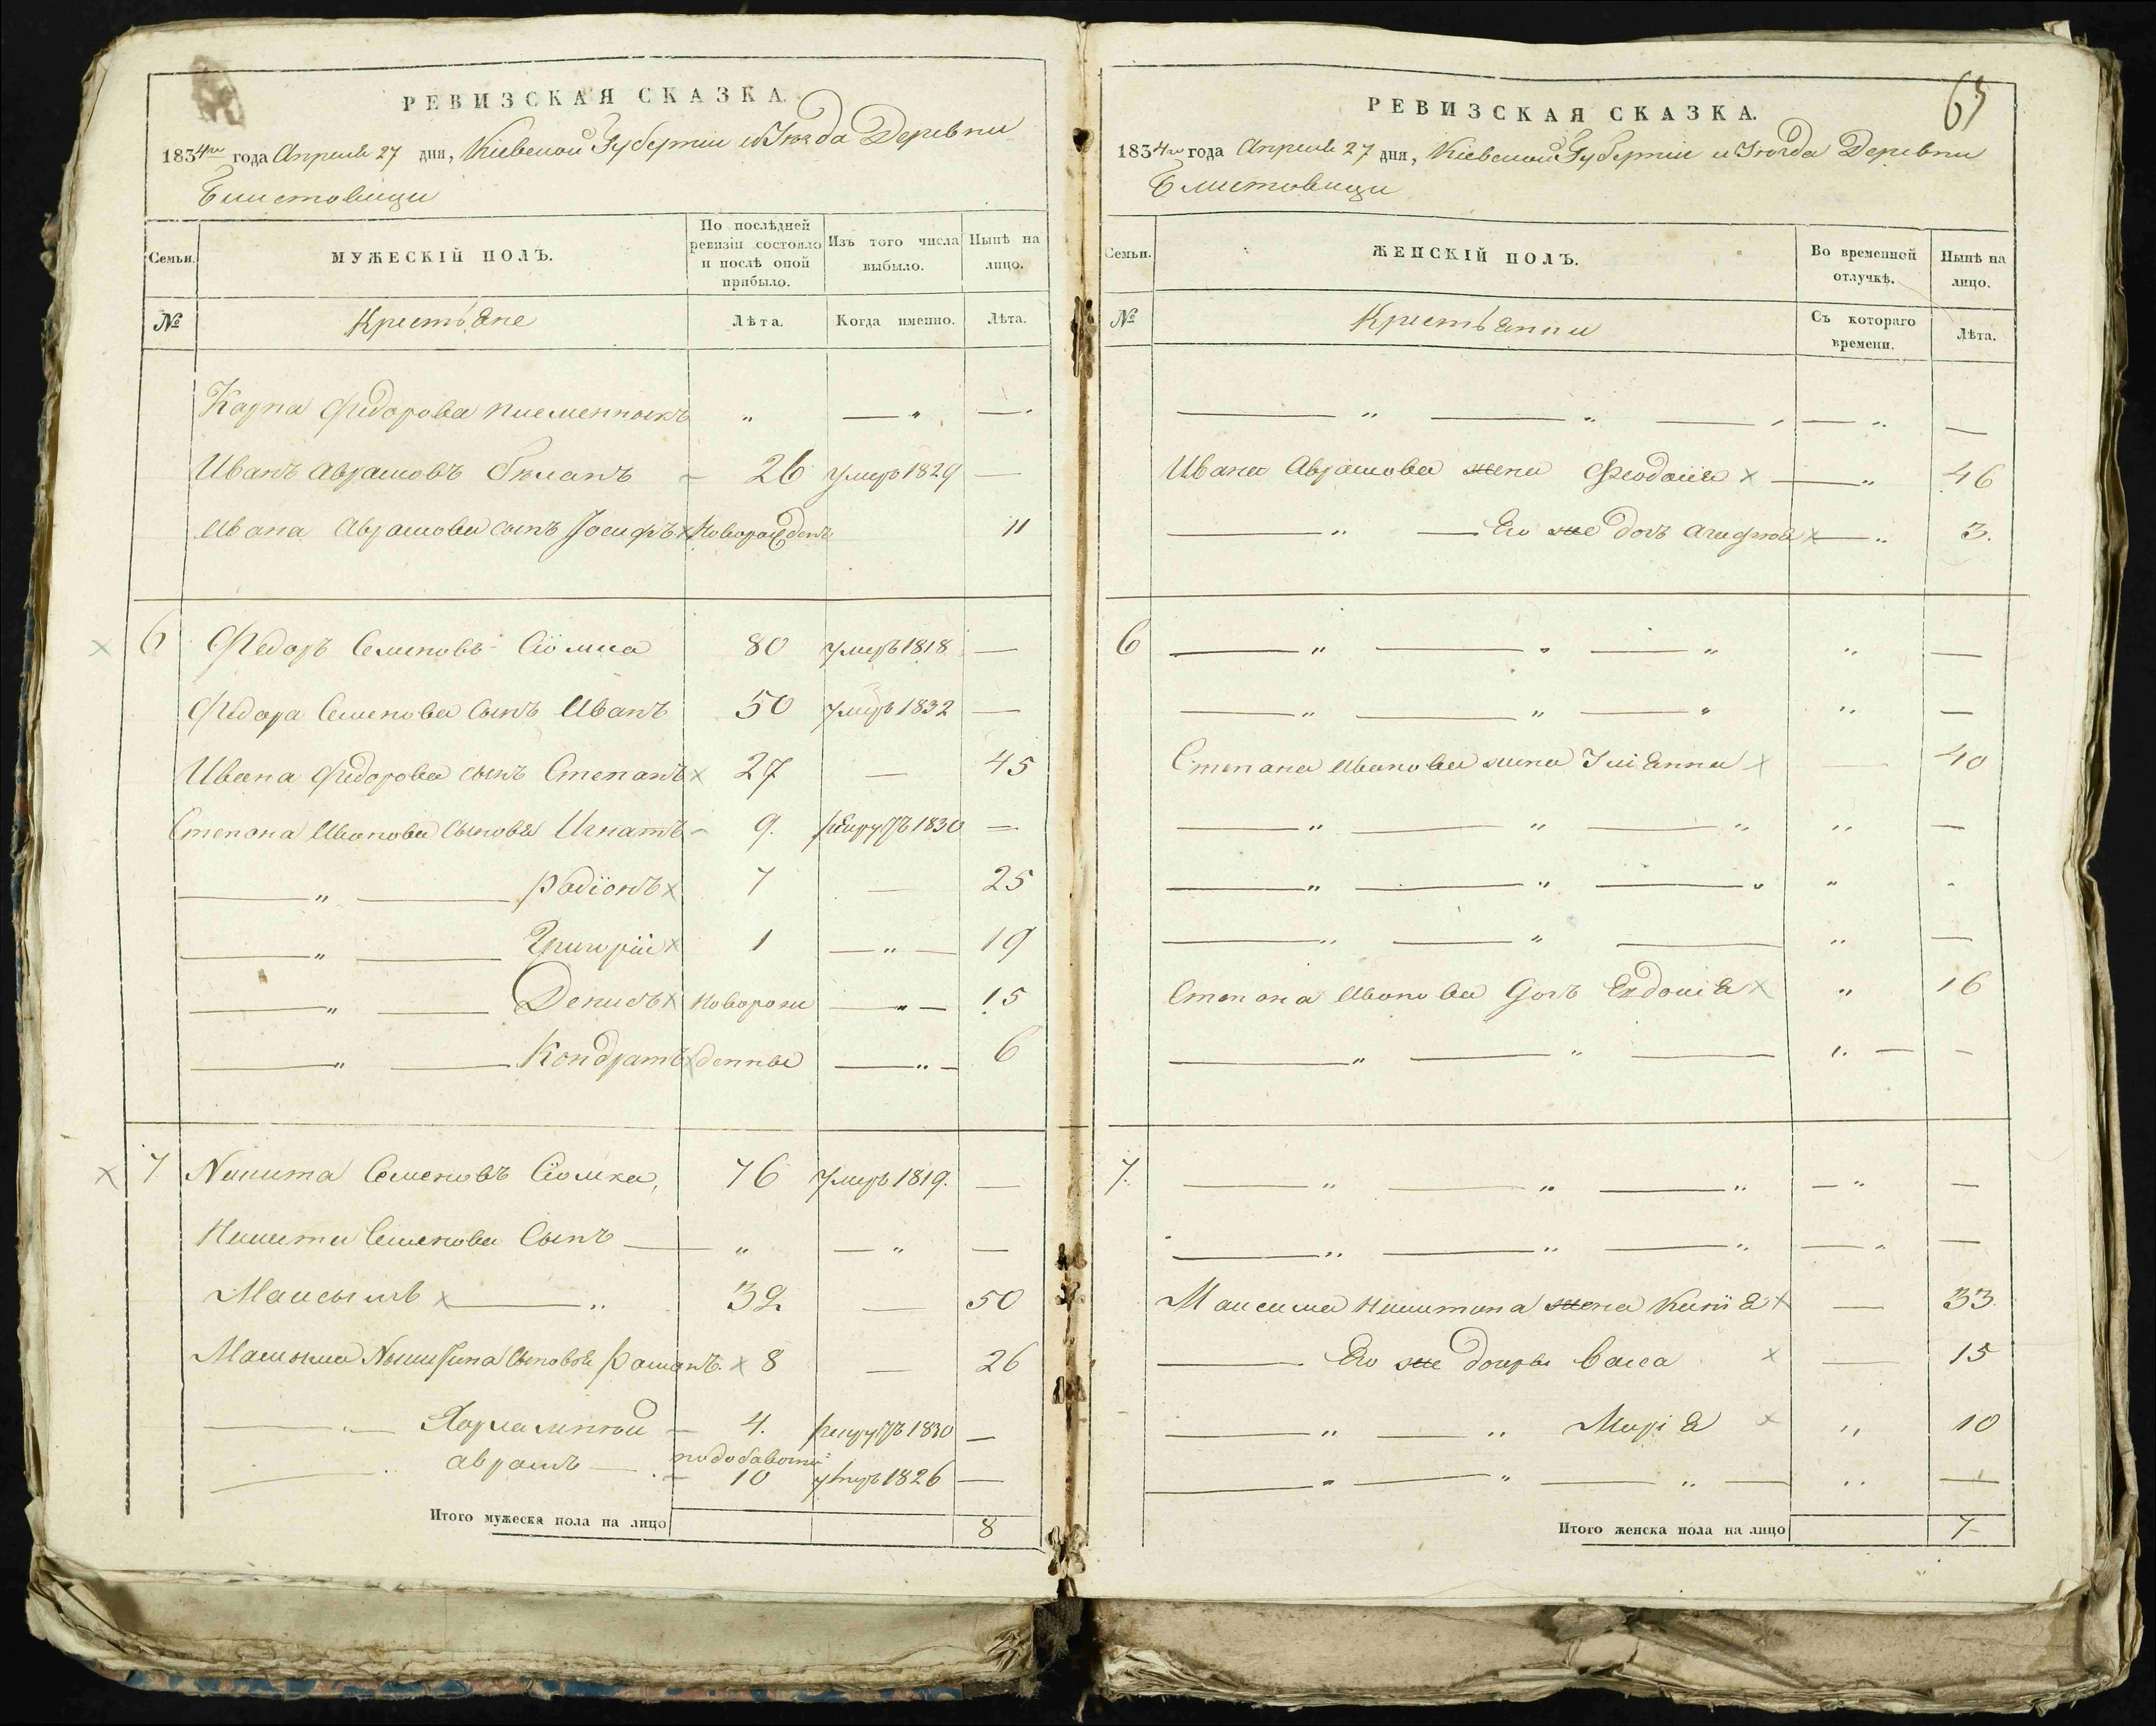 РЕВИЗСКАЯ СКАЗКА.
1834го года Апреля 27 дня, Кіевской Губерніи и Уезда Деревни
Блистовици
Семьи.
МУЖЕСКІЙ ПОЛЪ.
По послѣдней ревизіи состояло и послѣ оной прибыло.
Изъ того числа выбыло.
Нынѣ на лицо.
№
Крестьяне
Лѣта.
Когда именно.
Лѣта.
Карпа Федорова племенникъ „ — „ —
Иванъ Аврамовъ 26 умеръ 1829 —
Ивана Аврамова сынъ Іосифъ х Новорожденъ 11
х 6 Федоръ Семеновъ Сіомка 80 умеръ 1818 —
Федора Семенова сынъ Иванъ 50 умеръ 1832 —
Ивана Федорова сынъ Степанъ х 27 — 45
Степана Иванова сыновья Игнатъ - 9. 1830 —
— „ — Радіонъ х 7 — 25
— „ — Григорій х 1 — „ — 19
— „ — Денисъ х новорож — „ — 15
— „ — Кондратъ х денны — „ — 6
х 7. Никита Семеновъ Сіомка, 76 умеръ 1819. —
Никиты Семенова Сынъ — „ — „ —
Максымъ х — „ 32 — 50
Максыма Никитина сыновья Романъ. х 8 — 26
— „ — Харлампій — 4. 1830 —
Аврамъ — 10 умеръ 1826 —
Итого мужеска пола на лицо 8
65
РЕВИЗСКАЯ СКАЗКА.
1834го года Апреля 27 дня, Кіевской Губерніи и Уезда Деревни
Блистовици
Семьи.
ЖЕНСКІЙ ПОЛЪ.
Во временной отлучкѣ.
Нынѣ на лицо.
№
Крестьянки
Съ котораго времени.
Лѣта.
— „ — „ — — „ —
Ивана Аврамова жена Феодосія х — „ 46
— „ — Его же дочь Агафія х — „ 3.
6 — „ — „ — „ „ —
— „ — „ — „ „ —
Степана Иванова жена Уліянна х — 40
— „ — „ — „ „ —
— „ — „ — „ „ -
— „ — „ — „ —
Степана Иванова дочь Евдокія х „ 16
— „ — „ — „ — —
7. — „ — „ — „ — „ —
— „ — „ — „ — „ —
Максима Никитина жена х — 33
— Его же дочеры Васса х — 15
— „ — „ Марія х „ 10
— „ — „ — „ — „ —
Итого женска пола на лицо 7